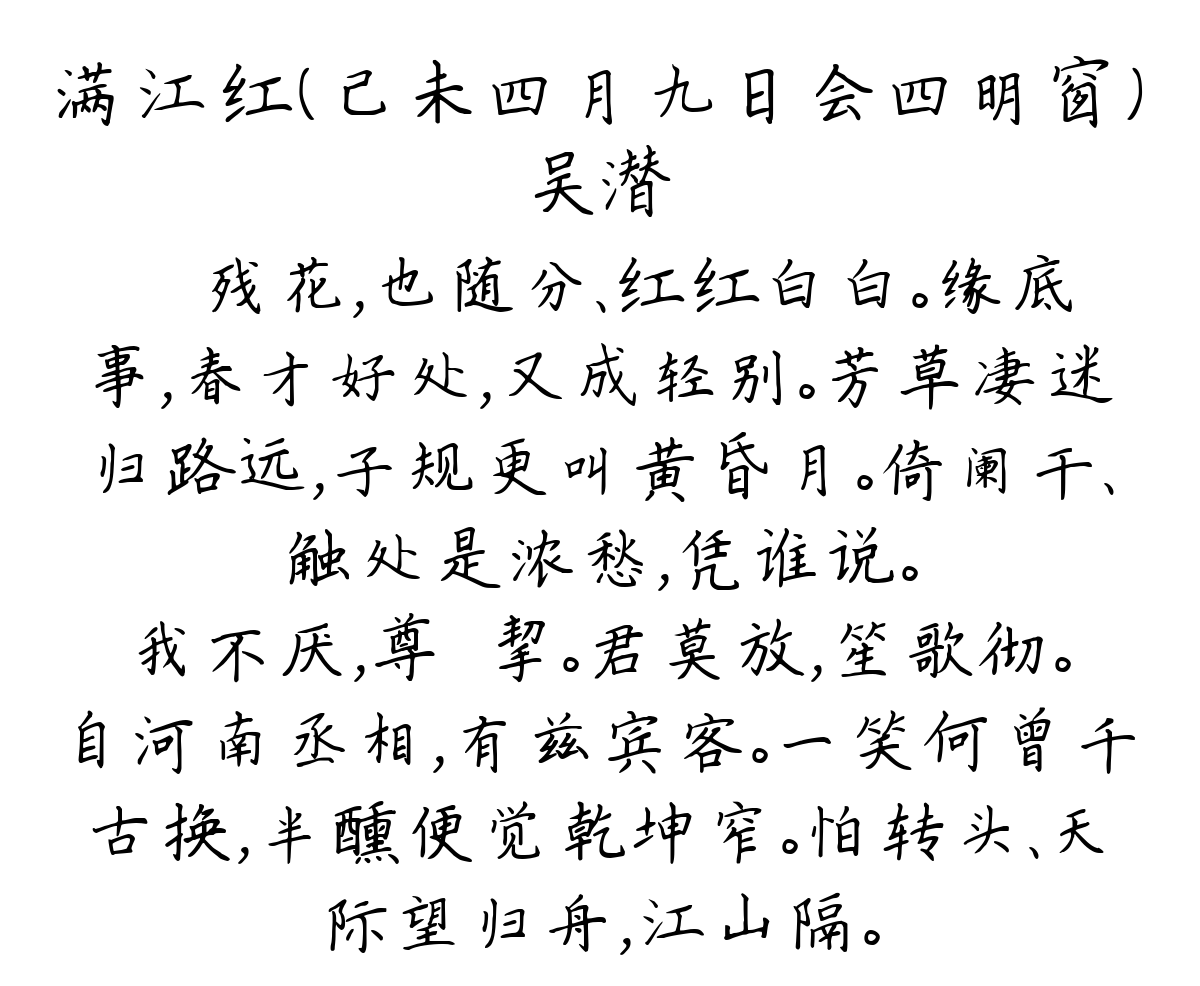 满江红(己未四月九日会四明窗)
吴潜
残花,也随分、红红白白。缘底
事,春才好处,又成轻别。芳草凄迷
归路远,子规更叫黄昏月。倚阑干、
触处是浓愁,凭谁说。
我不厌,尊 挈。君莫放,笙歌彻。
自河南丞相,有兹宾客。一笑何曾千
古换,半醺便觉乾坤窄。怕转头、天
际望归舟,江山隔。